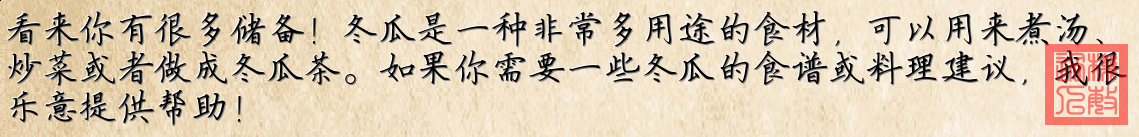 看来你有很多储备！冬瓜是一种非常多用途的食材，可以用来煮汤、
炒菜或者做成冬瓜茶。如果你需要一些冬瓜的食谱或料理建议，我很
乐意提供帮助！